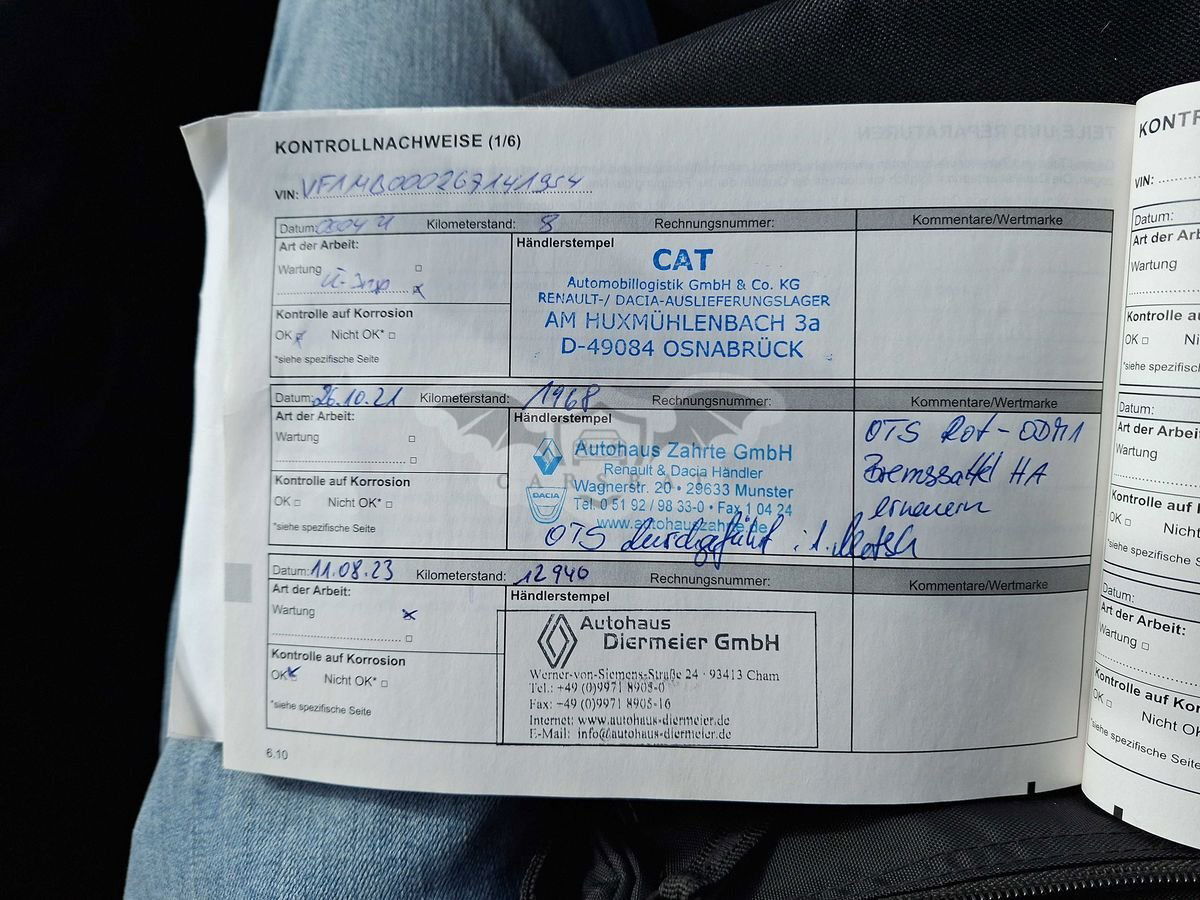 KONTROLLNACHWEISE (1/6)
VIN:
Datum: Kilometerstand: 8 Rechnungsnummer: Kommentare/Wertmarke
Art der Arbeit:
Händlerstempel
Wartung
Kontrolle auf Korrosion
OK Nicht OK*
*siehe spezifische Seite
CAT
Automobillogistik GmbH & Co. KG
RENAULT-/ DACIA-AUSLIEFERUNGSLAGER
AM HUXMÜHLENBACH 3a
D-49084 OSNABRÜCK
Datum: 26.10.21 Kilometerstand: 1968 Rechnungsnummer: Kommentare/Wertmarke
Art der Arbeit:
Händlerstempel
Wartung
Kontrolle auf Korrosion
OK Nicht OK*
*siehe spezifische Seite
Autohaus Zahrte GmbH
Renault & Dacia Händler
DACIA
Wagnerstr. 20 • 29633 Munster
Tel. 0 51 92 / 98 33-0 • Fax 1 04 24
www.autohauszahrte.de
OTS durchgeführt
OTS Rot - 0DM1
Bremssattel HA
erneuern
Datum: 11.08.23 Kilometerstand: 12940 Rechnungsnummer: Kommentare/Wertmarke
Art der Arbeit:
Händlerstempel
Wartung
Kontrolle auf Korrosion
OK Nicht OK*
*siehe spezifische Seite
Autohaus
Diermeier GmbH
Werner-von-Siemens-Straße 24 · 93413 Cham
Tel.: +49 (0)9971 8905-0
Fax: +49 (0)9971 8905-16
Internet: www.autohaus-diermeier.de
E-Mail: info@autohaus-diermeier.de
6.10
KONTR
VIN:
Datum:
Art der Arb
Wartung
Kontrolle au
OK Ni
*siehe spezifisc
Datum:
Art der Arbei
Wartung
Kontrolle auf K
OK Nicht O
*siehe spezifische
Datum:
Art der Arbeit:
Wartung
Kontrolle auf Kor
OK Nicht OK
*siehe spezifische Seite